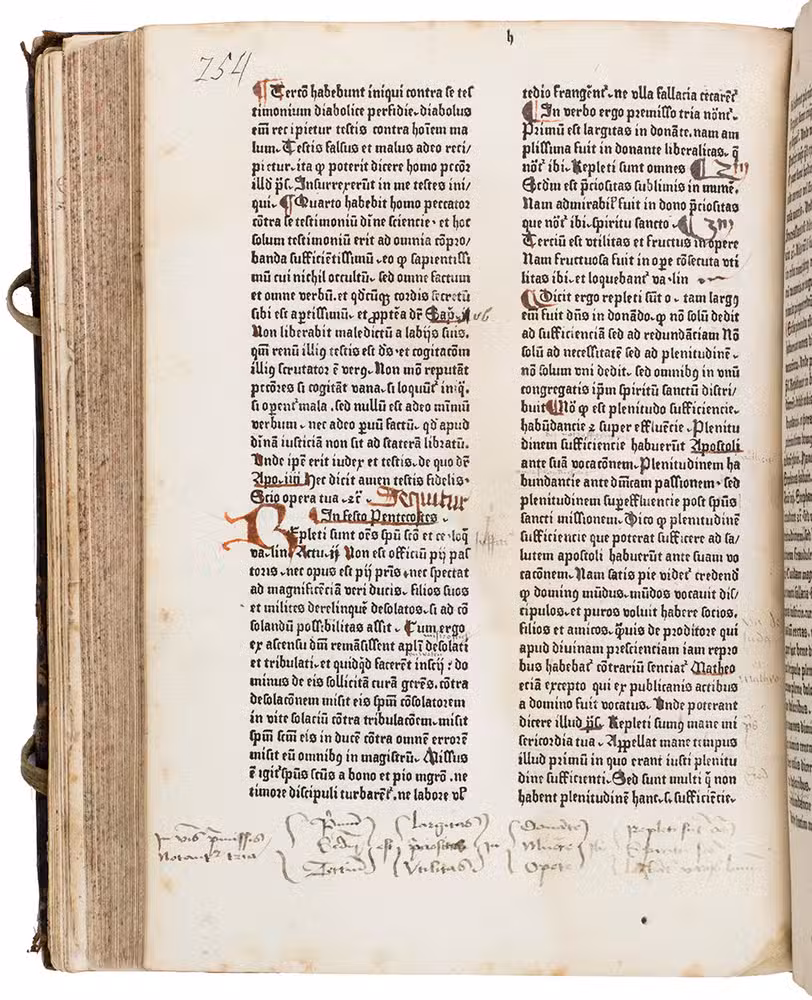 h
254
¶ Tercō habebunt iniqui contra se tes
timonium diabolice perfidie. diabolus
em̄ rec ipietur testis contra hoīem ma
lum. Testis falsus et malus adeo reci/
pietur. ita ꝙ poterit dicere homo pccōr
illd p̄s. Insurrexerūt in me testes ini/
qui. ¶ Quarto habebit homo peccator
cōtra se testimoniū dīne sciencie. et hoc
solum testimoniū erit ad omnia cōpro/
banda sufficiētissimū. eo ꝙ sapientissi
mū cui nichil occultū. sed omne factum
et omne verbū. et qd̄cūqꝫ cordis secretū
sibi est aꝑtissimū. et ꝓptēa dr̄ Sap.
Non liberabit maledictū a labijs suis.
qm̄ renū illiꝰ testis est ds̄. et cogitacōm
illiꝰ scrutator ē verꝰ. Non mō reputāt
pccōres si cogitāt vana. si loquūt̄ iniq̄.
si oꝑent̄ mala. sed nullū est adeo mīmū
verbum. nec adeo ꝑuū factū. qd̄ apud
dīnā iusticiā non sit ad staterā libratū.
Unde ip̄e erit iudex et testis. de quo dr̄
Apo. iii Hec dicit amen testis fidelis.
Scio opera tua. ꝛc̄ Sequitur
¶ In festo Pentecostes.
REpleti sunt oēs sp̄u scō et ce. loq̄
va. lin Actu. ij Non est officiū pij pas
toris. nec opus est pij pr̄is. nec spectat
ad magnificēciā veri ducis. filios suos
et milites derelinque desolatos. si ad cō
solandū possibilitas assit. Cum ergo
ex ascensu dn̄i remāsissent apl̄i desolati
et tribulati. et quidq̄d facerēt inscij: do
minus de eis sollicitā curā gerēs. cōtra
desolacōnem misit eis sp̄m cōsolatorem
in vite solaciū cōtra tribulacōem. misit
sp̄m scm̄ eis in ducē cōtra omnē errorē
misit eū omnibꝰ in magistrū. Missus
ē igit̄ sp̄us scūs a bono et pio mgrō. ne
timore discipuli turbarēt̄. ne labore vl̄
tedio frangēnt̄. ne vlla fallacia cecarēt̄
¶ In verbo ergo premisso tria nōnt̄.
Primū est largitas in donāte. nam am
plissima fuit in donante liberalitas. q̄
nōt̄ ibi. Repleti sunt omnes ¶ 2m
Scdm̄ est p̄ciositas sublimis in mune.
Nam admirabiľ fuit in dono p̄ciositas
que nōt̄ ibi. spiritu sancto. ¶ 3m
Terciū est vtilitas et fructus in opere
Nam fructuosa fuit in oꝑe cōsecuta vti
litas ibi. et loquebant̄ va. lin
¶ Dicit ergo repleti sūt ō. tam largꝰ
em̄ fuit dn̄s in donādo. ꝙ nō solū dedit
ad sufficienciā sed ad redundāciam Nō
solū ad necessitatē sed ad plenitudinē.
nō solum vni dedit. sed omnibꝰ in vnū
congregatis ip̄m spiritū sanctū distri/
buit ¶ Nō ꝙ est plenitudo sufficiencie.
habūdancie ꝛ super effluēcie. Plenitu
dinem sufficiencie habuerūt Apostoli
ante suā vocacōnem. Plenitudinem ha
bundancie ante dn̄icam passionem. sed
plenitudinem suꝑeffluēcie post sp̄us
sancti missionem. Dico ꝙ plenitudinē
sufficiencie que poterat sufficere ad sa/
lutem apostoli habuerūt ante suam vo
cacōnem. Nam satis pie videt̄ credend̄
ꝙ dominꝰ mūdus. mūdos vocauit dis/
cipulos. et puros voluit habere socios.
filios et amicos. Quis de proditore qui
apud diuinam prescienciam iam repro
bus habebat̄ cōtrariū senciat̄ Matheo
eciā excepto qui ex publicanis actibus
a domino fuit vocatus. Unde poterant
dicere illud p̄s. Repleti sumꝰ mane mi
sericordia tua. Appellat mane tempus
illud primū in quo erant iusti plenitu
dine sufficienti. Sed sunt multi q̄ non
habent plenitudinē hanc. s. sufficiēcie.
Primū Largitas Donante
Notant̄ tria Scdm̄ est p̄ciositas in Munere
Tertium Utilitas Opere